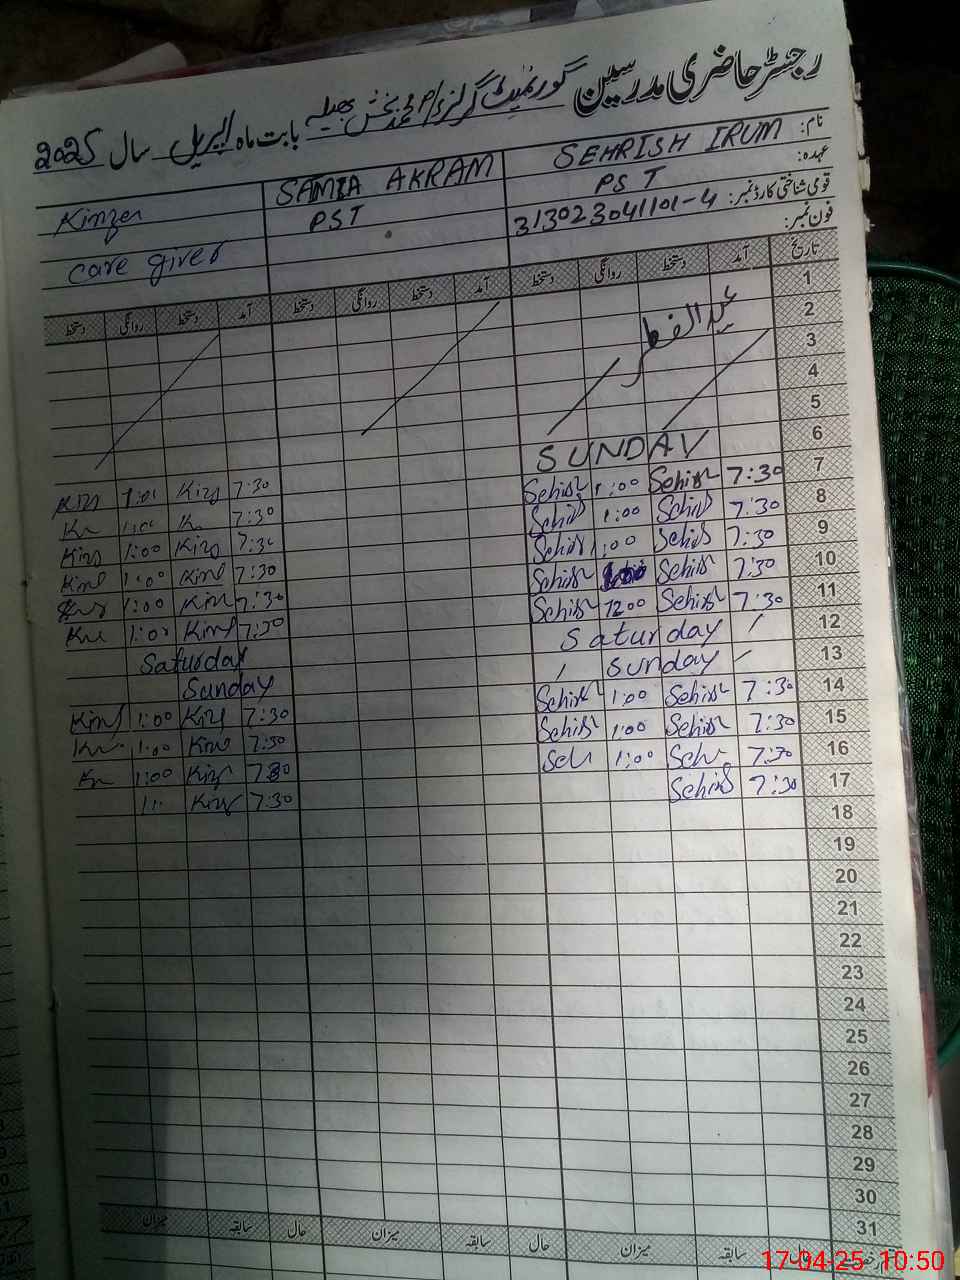 رجسٹر حاضری مدرسین گورنمنٹ گرلز محمد بخش بابت ماہ اپریل سال 2025
نام: SEHRISH IRUM SAMIA AKRAM Kinza
عہدہ: PST PST care giver
قومی شناختی کارڈ نمبر: 313023041101-4
فون نمبر:
تاریخ آمد دستخط روانگی دستخط آمد دستخط روانگی دستخط آمد دستخط روانگی دستخط
1
2 عید الفطر
3
4
5
6 SUNDAY
7 7:30 Sehrish 1:00 Sehrish 7:30 Kinz 1:00 Kinz
8 7:30 Sehrish 1:00 Sehrish 7:30 Kn 1:00 Kn
9 7:30 Sehrish 1:00 Sehrish 7:30 Kinz 1:00 Kinz
10 7:30 Sehrish 1:00 Sehrish 7:30 1:00
11 7:30 Sehrish 1200 Sehrish 7:30 1:00
12 Saturday 7:30 1:00
13 Sunday Saturday
14 7:30 Sehrish 1:00 Sehrish Sunday
15 7:30 Sehrish 1:00 Sehrish 7:30 1:00
16 7:30 Seh 1:00 Seh 7:30 1:00
17 7:30 Sehrish 7:30 1:00
18 7:30
19
20
21
22
23
24
25
26
27
28
29
30
31
حال سابقہ میزان حال سابقہ میزان حال سابقہ میزان
17-04-25 10:50